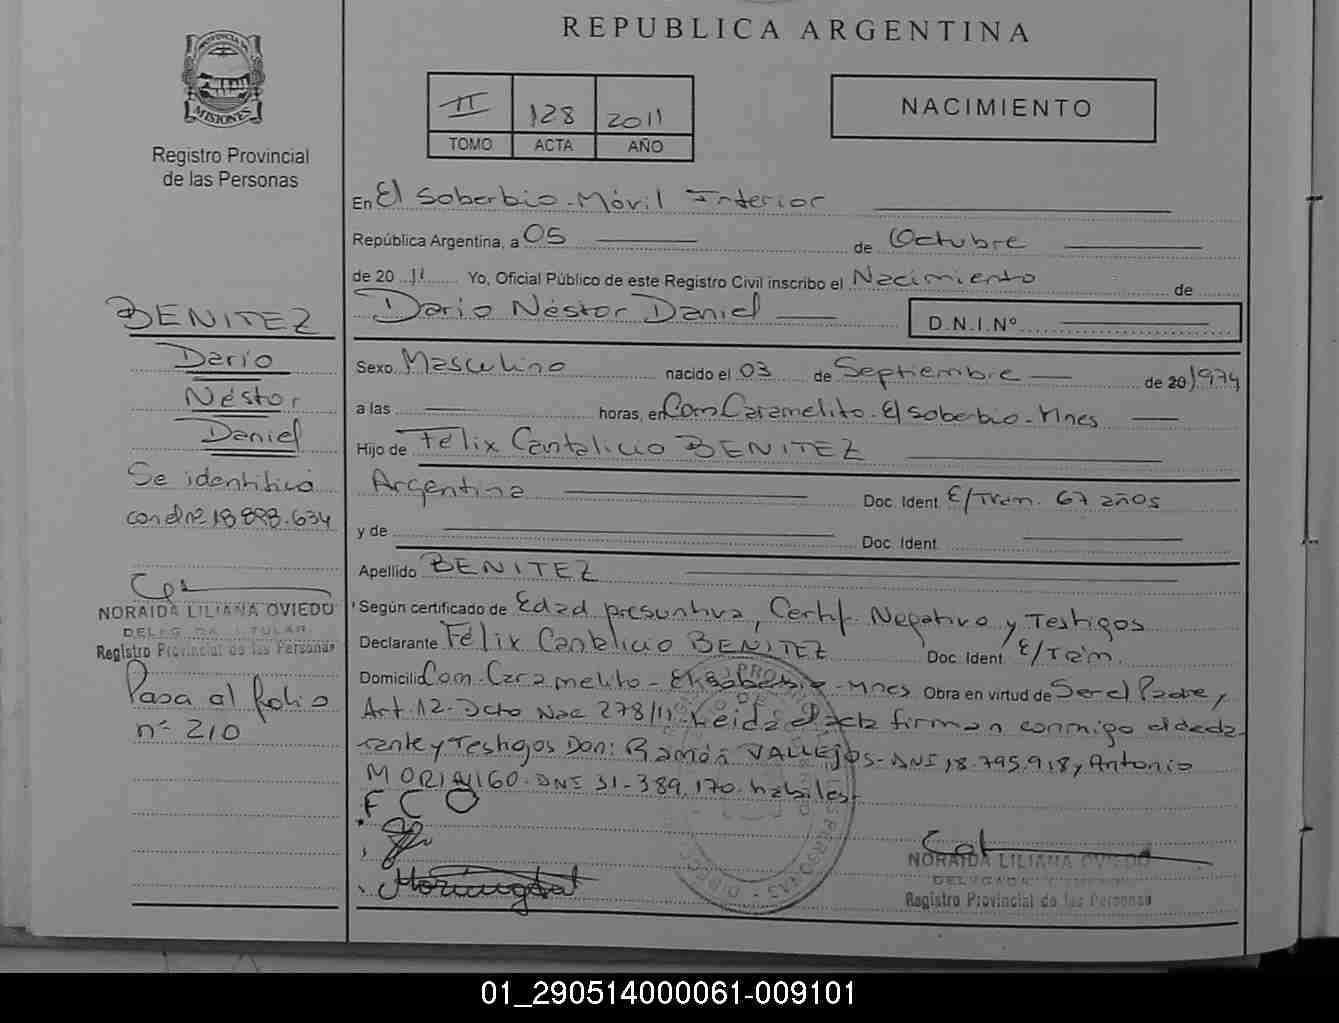 REPUBLICA ARGENTINA
PROVINCIA DE
MISIONES
Registro Provincial
de las Personas
II 128 2011
TOMO ACTA AÑO
NACIMIENTO
En El Soberbio-Móvil Interior
República Argentina, a 05 de Octubre
de 20 11 Yo, Oficial Público de este Registro Civil inscribo el Nacimiento de
Dario Néstor Daniel D.N.I.Nº
Sexo Masculino nacido el 03 de Septiembre de 20 1974
a las horas, en Com Caramelito-El Soberbio-Mnes
Hijo de Félix Cantalicio BENITEZ
Argentina Doc. Ident. E/Trám. 67 años
y de Doc. Ident.
Apellido BENITEZ
Según certificado de Edad presuntiva, Certif. Negativo y Testigos
Declarante Félix Cantalicio BENITEZ Doc. Ident. E/Trám.
Domicilio Com. Caramelito-El Soberbio-Mnes Obra en virtud de Ser el Padre y
Art 12-Dcto Nac 278/11-Leida el acta firman conmigo el decla-
rante y Testigos Don: Ramón VALLEJOS-DNI 18.795.918 y Antonio
MORINIGO-DNI 31-389.170-habiles-
F C O
NORAIDA LILIANA OVIEDO
DELEGADA TITULAR
Registro Provincial de las Personas
BENITEZ
Dario
Néstor
Daniel
Se identifica
con el nº 18.898.634
NORAIDA LILIANA OVIEDO
DELEGADA TITULAR
Registro Provincial de las Personas
Pasa al folio
nº 210
01_290514000061-009101